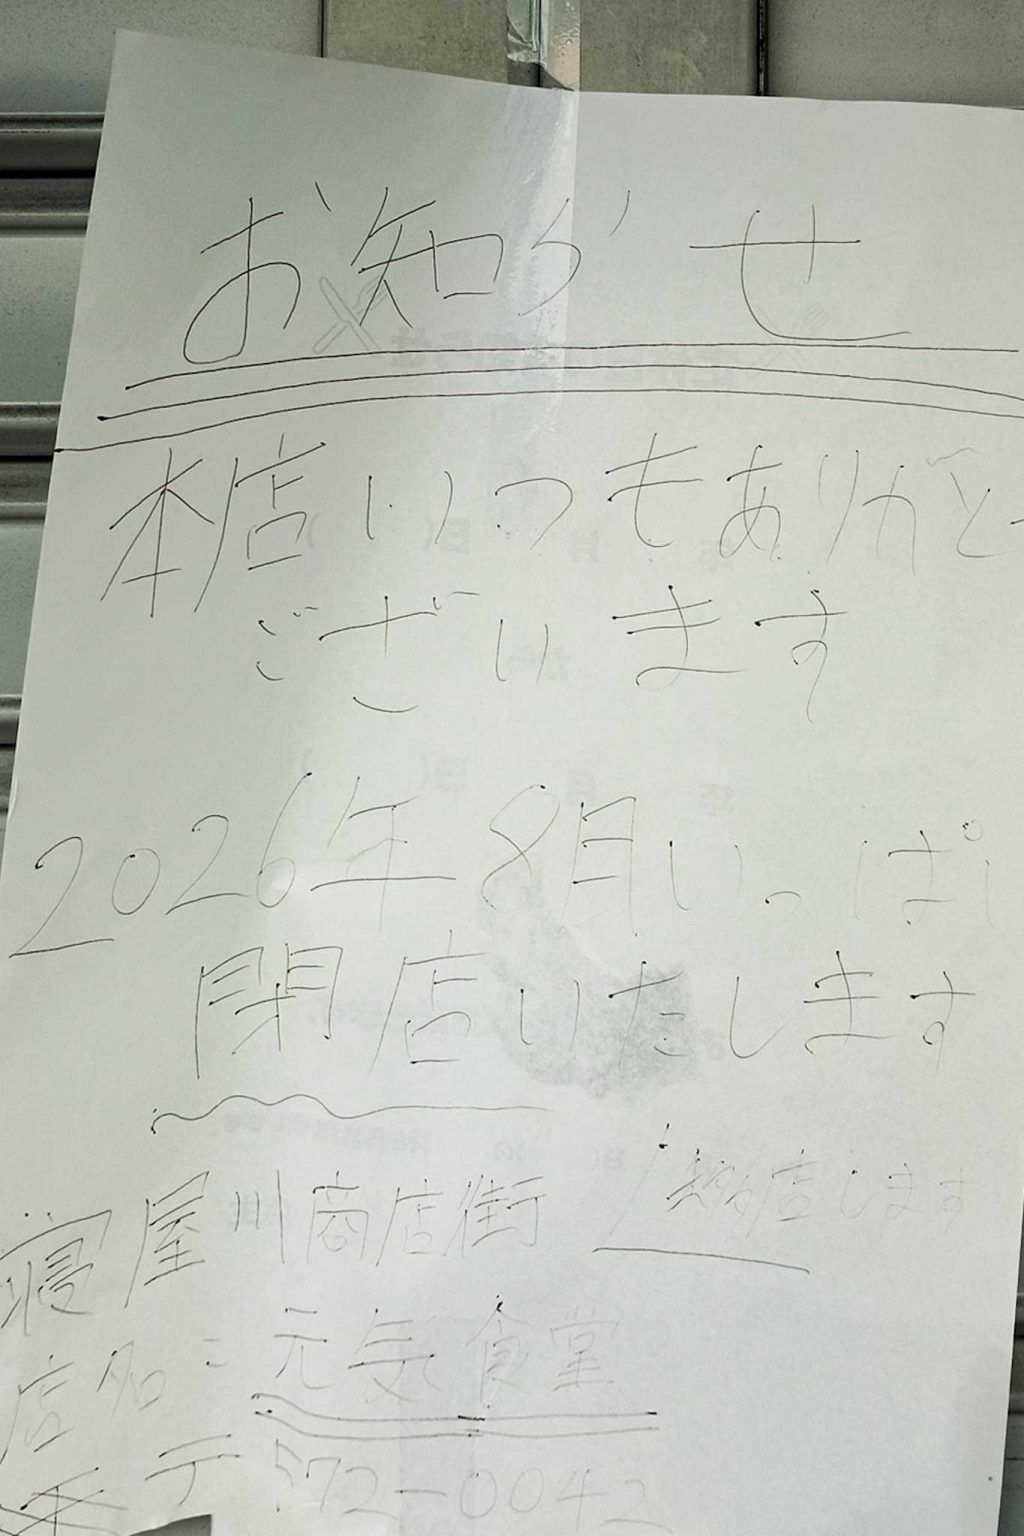 お知らせ
本店いつもありがと
ございます
2026年8月いっぱい
閉店いたします
寝屋川商店街
店します
店名：元気食堂
〒572-0042